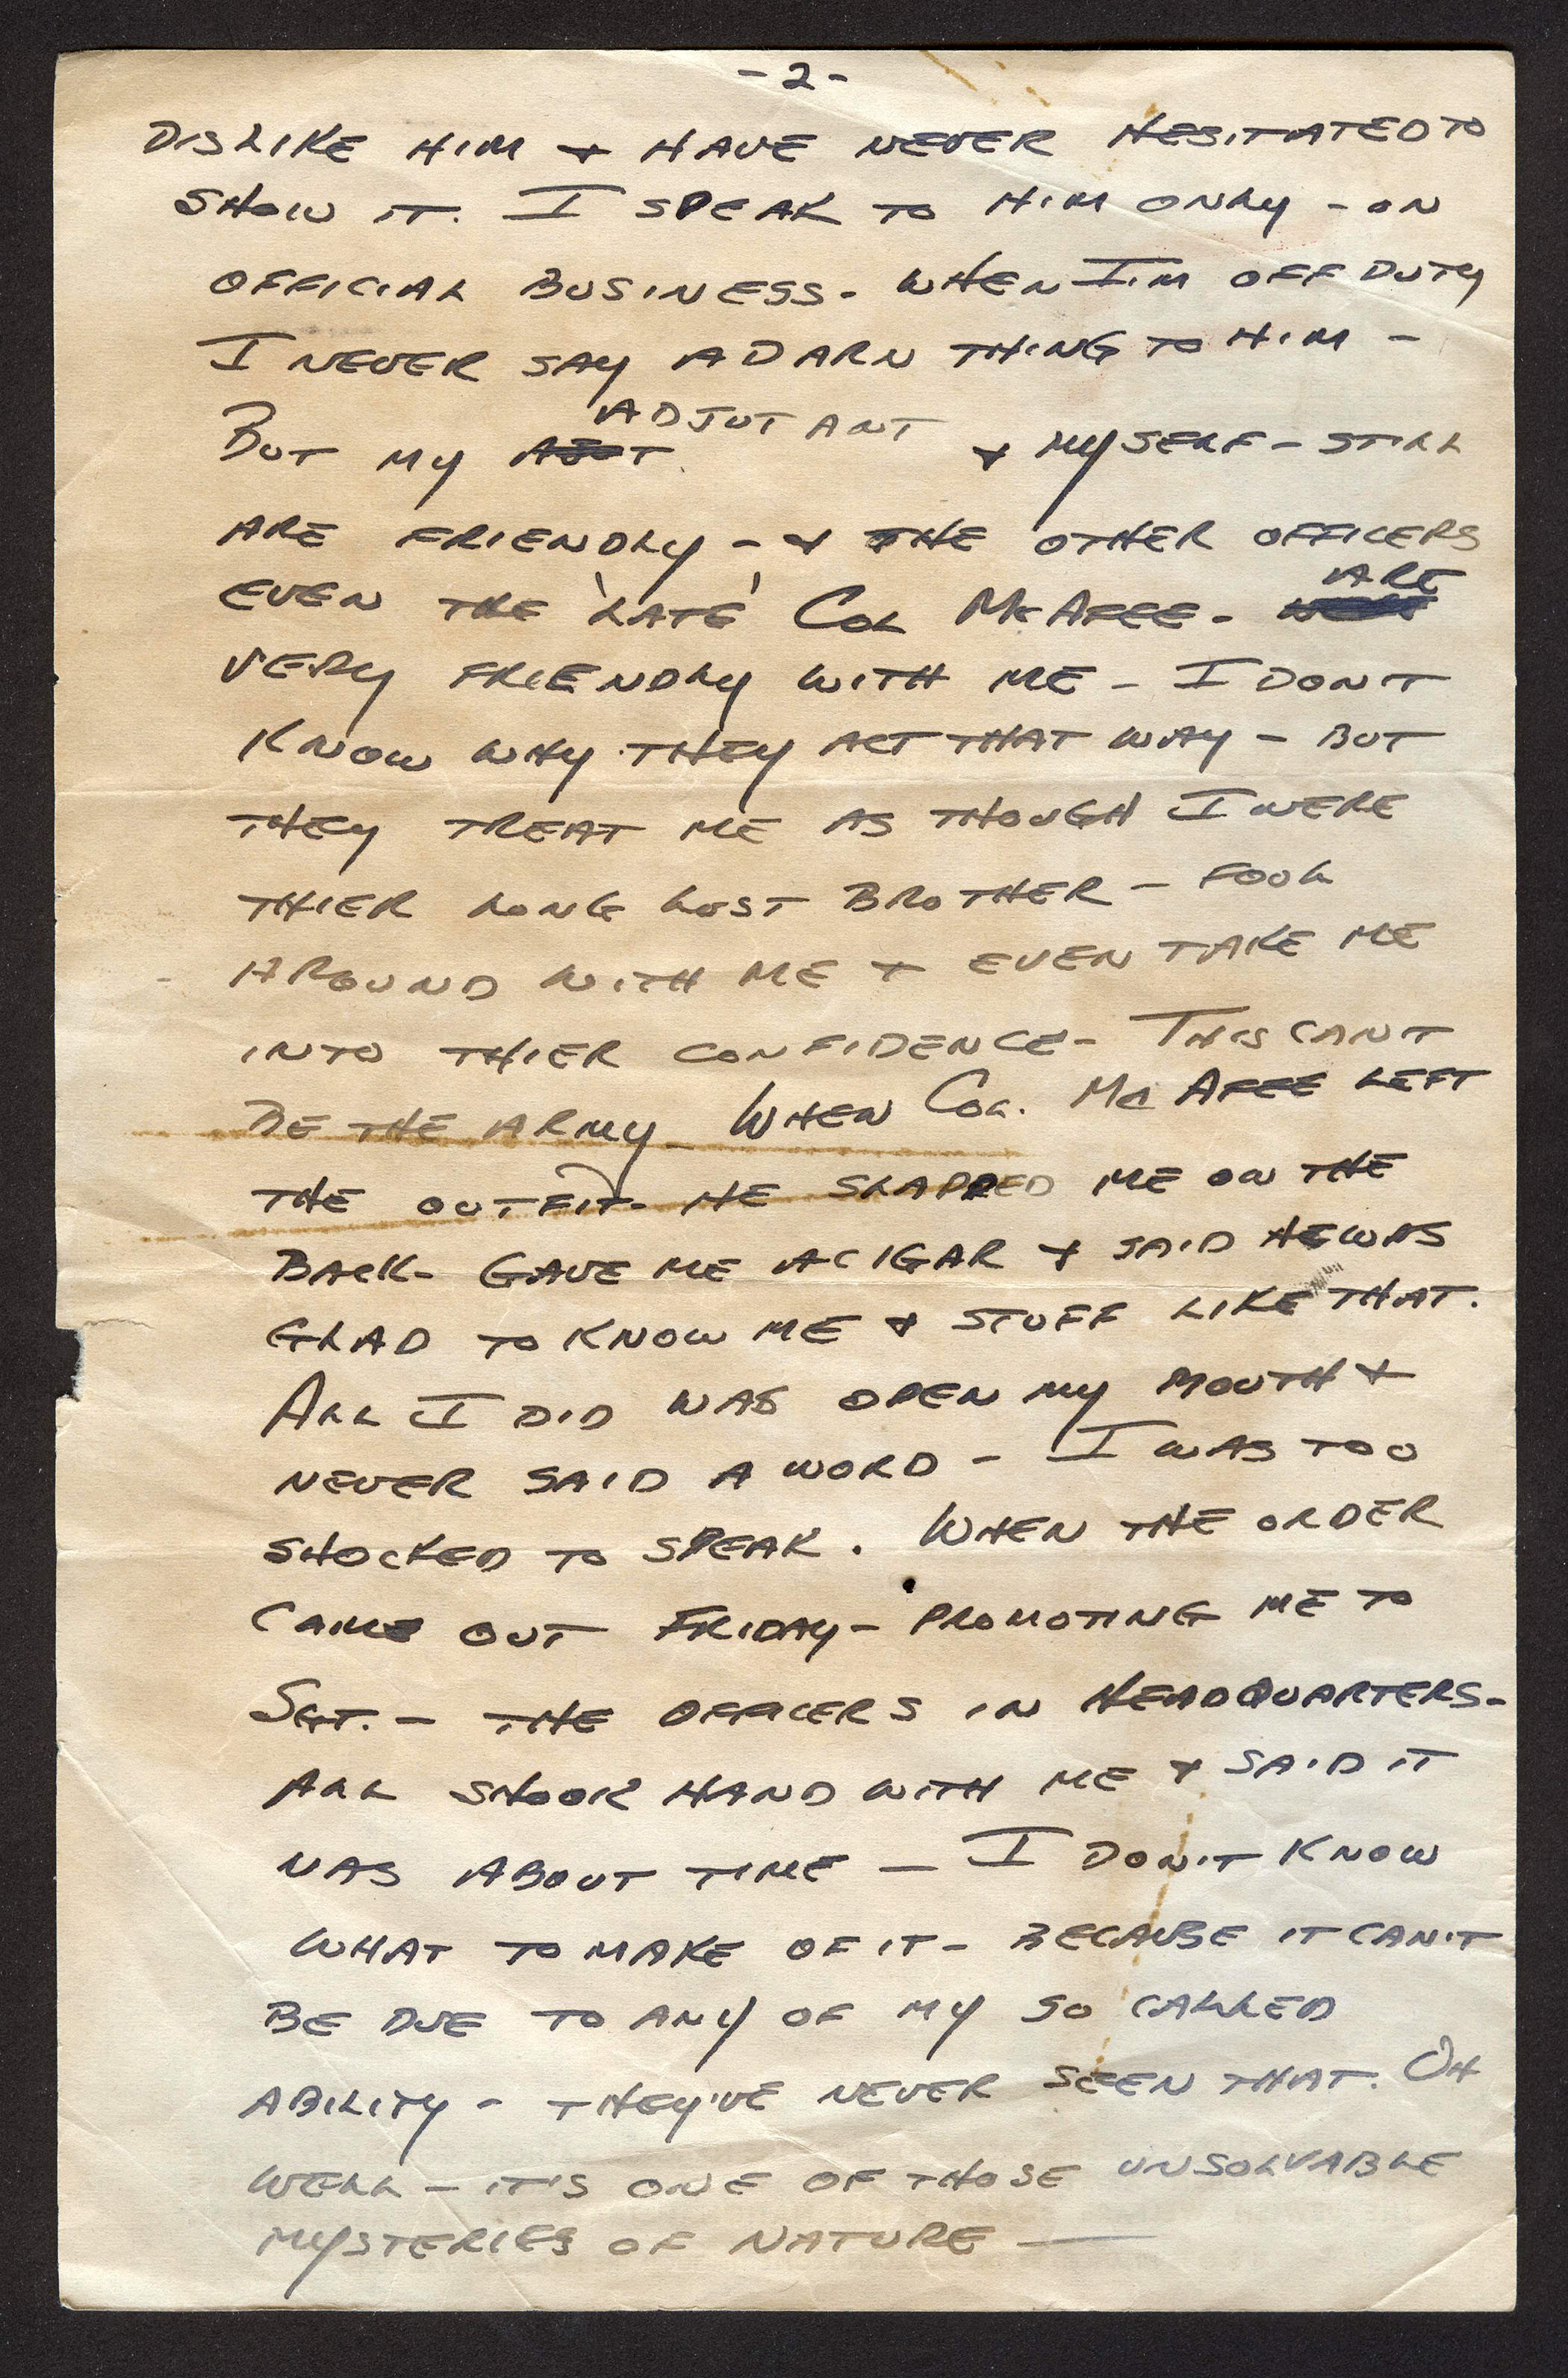 - 2 -
DISLIKE HIM & HAVE NEVER HESITATED TO
SHOW IT. I SPEAK TO HIM ONLY - ON
OFFICIAL BUSINESS. WHEN I'M OFF DUTY
I NEVER SAY A DARN THING TO HIM -
ADJUTANT
BUT MY & MYSELF - STILL
ARE FRIENDLY - & THE OTHER OFFICERS
ARE
EVEN THE 'LATE' COL MCAFEE.
VERY FRIENDLY WITH ME - I DON'T
KNOW WHY THEY ACT THAT WAY - BUT
THEY TREAT ME AS THOUGH I WERE
THIER LONG LOST BROTHER - FOOL
AROUND WITH ME & EVEN TAKE ME
INTO THIER CONFIDENCE - THIS CAN'T
BE THE ARMY - WHEN COL. MC AFEE LEFT
THE OUTFIT - HE SLAPPED ME ON THE
BACK - GAVE ME A CIGAR & SAID HE WAS
GLAD TO KNOW ME & STUFF LIKE THAT.
ALL I DID WAS OPEN MY MOUTH &
NEVER SAID A WORD - I WAS TOO
SHOCKED TO SPEAK. WHEN THE ORDER
CAME OUT FRIDAY - PROMOTING ME TO
SGT. - THE OFFICERS IN HEADQUARTERS -
ALL SHOOK HAND WITH ME & SAID IT
WAS ABOUT TIME - I DON'T KNOW
WHAT TO MAKE OF IT - BECAUSE IT CAN'T
BE DUE TO ANY OF MY SO CALLED
ABILITY - THEY'VE NEVER SEEN THAT. OH
WELL - IT'S ONE OF THOSE UNSOLVABLE
MYSTERIES OF NATURE —